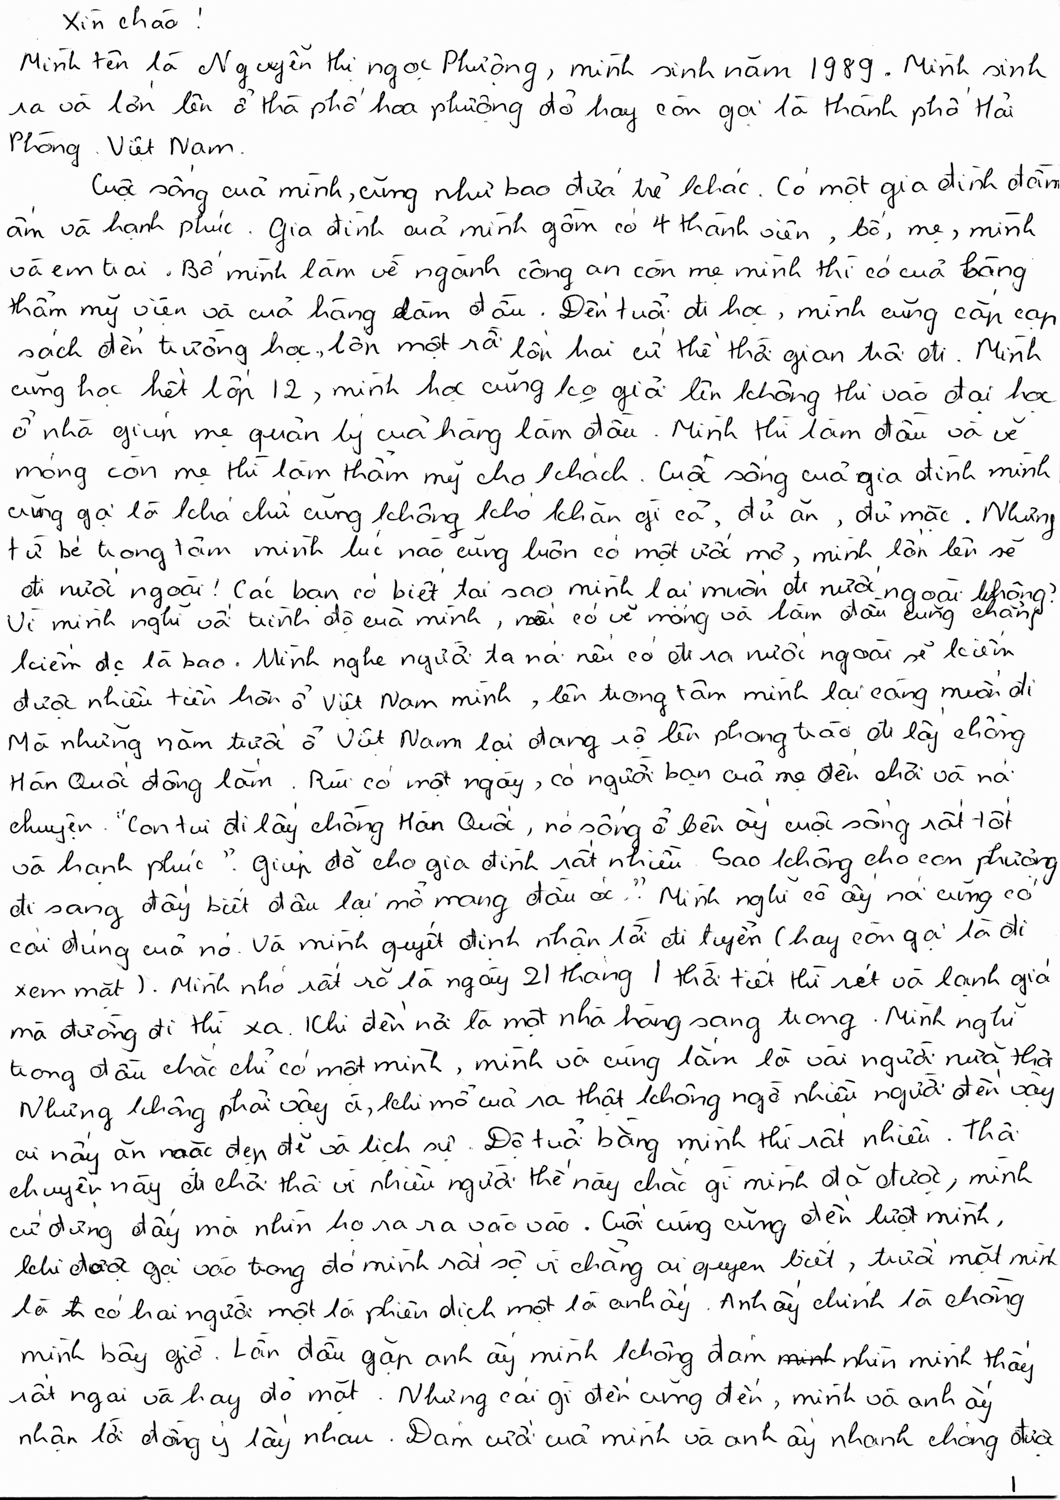 Xin chào !
Mình tên là Nguyễn thị ngọc Phượng, mình sinh năm 1989. Mình sinh
ra và lớn lên ở thà phố hoa phượng đỏ hay còn gọi là thành phố Hải
Phòng. Việt Nam.
Cuộc sống cuả mình, cũng như bao đứa trẻ khác. Có một gia đình đầm
ấm và hạnh phúc. Gia đình cuả mình gồm có 4 thành viên, bố, mẹ, mình
và em trai. Bố mình làm về ngành công an còn mẹ mình thì có cuả bàng
thẩm mỹ viện và cuả hàng làm đầu. Đến tuổi đi học, mình cũng cắp cạp
sách đến trường học, lớn một rồi lớn hai cứ thế thả gian trôi đi. Mình
cũng học hết lớp 12, mình học cũng kọ giỏi lên không thi vào đại học
ở nhà giúp mẹ quản lý cuả hàng làm đầu. Mình thì làm đầu và vẽ
móng còn mẹ thì làm thẩm mỹ cho khách. Cuộc sống cuả gia đình mình
cũng gọi là khá chứ cũng không khó khăn gì cả, đủ ăn, đủ mặc. Nhưng
từ bé trong tâm mình lúc nào cũng luôn có một ước mơ, mình lớn lên sẽ
đi nước ngoài! Các bạn có biết tại sao mình lại muốn đi nước ngoài không?
Vì mình nghĩ với trình độ cuả mình, có vẽ móng và làm đầu cũng chẳng
kiếm đc là bao. Mình nghe người ta nói nếu có đi ra nước ngoài sẽ kiếm
được nhiều tiền hơn ở Việt Nam mình, lên trong tâm mình lại càng muốn đi
Mà những năm trước ở Việt Nam lại đang rộ lên phong trào đi lấy chồng
Hàn Quốc đông lắm. Rùi có một ngày, có người bạn cuả mẹ đến chơi và nói
chuyện. "Con tui đi lấy chồng Hàn Quốc, nó sống ở bên ấy cuộc sống rất tốt
và hạnh phúc". Giúp đỡ cho gia đình rất nhiều. Sao không cho con phượng
đi sang đấy biết đâu lại mở mang đầu óc." Mình nghĩ cô ấy nói cũng có
cái đúng cuả nó. Và mình quyết định nhận lời đi tuyển (hay còn gọi là đi
xem mặt). Mình nhớ rất rõ là ngày 21 tháng 1 thời tiết thì rét và lạnh giá
mà đường đi thì xa. Khi đến nơi là một nhà hàng sang trọng. Mình nghĩ
trong đầu chắc chỉ có một mình, mình và cùng lắm là vài người nưã thôi
Nhưng không phải vậy ạ, khi mở cuả ra thật không ngờ nhiều người đến vậy
ai nấy ăn mặc đẹp đẽ và lịch sự. Độ tuổi bằng mình thì rất nhiều. Thôi
chuyến này đi chơi thôi vì nhiều người thế này chắc gì mình đã được, mình
cứ đứng đấy mà nhìn họ ra ra vào vào. Cuối cùng cũng đến lượt mình,
khi được gọi vào trong đó mình rất sợ vì chẳng ai quyen biết, trước mặt mình
là có hai người một là phiên dịch một là anh ấy. Anh ấy chính là chồng
mình bây giờ. Lần đầu gặp anh ấy mình không dám nhìn mình thấy
rất ngại và hay đỏ mặt. Nhưng cái gì đến cũng đến, mình và anh ấy
nhận lời đồng ý lấy nhau. Đám cưới cuả mình và anh ấy nhanh chóng được
1